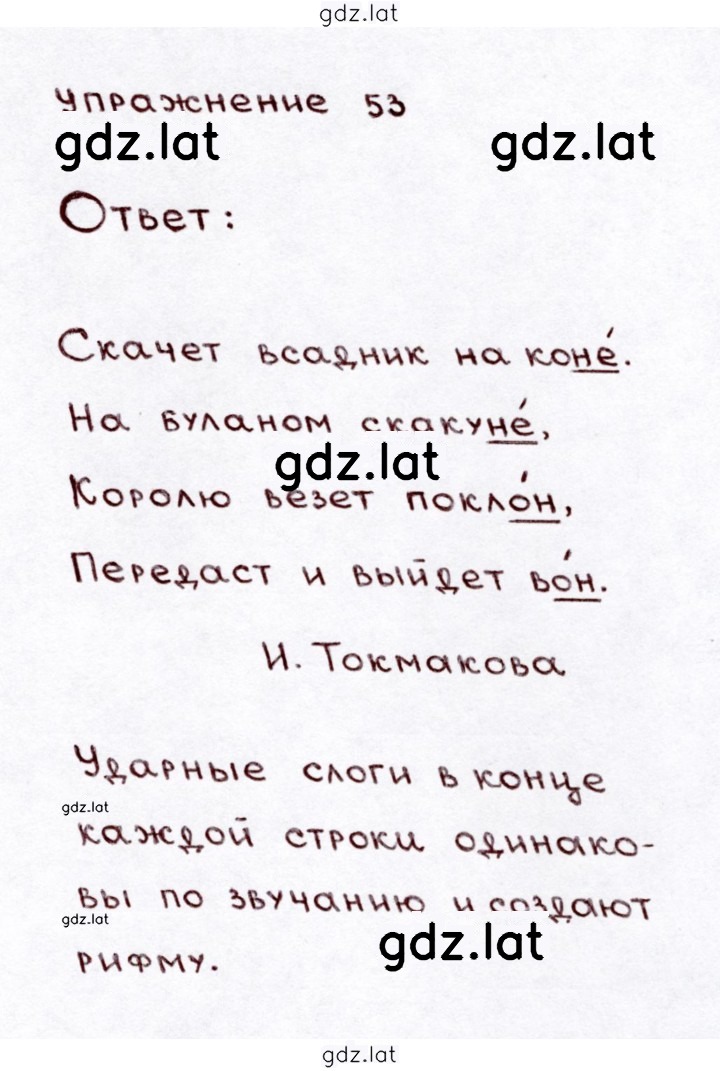 gdz.lat
Упражнение 53
gdz.lat gdz.lat
Ответ:
Скачет всадник на коне́.
На буланом скакуне́,
gdz.lat
Королю везет покло́н,
Передаст и выйдет во́н.
И. Токмакова
Ударные слоги в конце
gdz.lat
каждой строки одинако-
вы по звучанию и создают
gdz.lat
gdz.lat
рифму.
gdz.lat